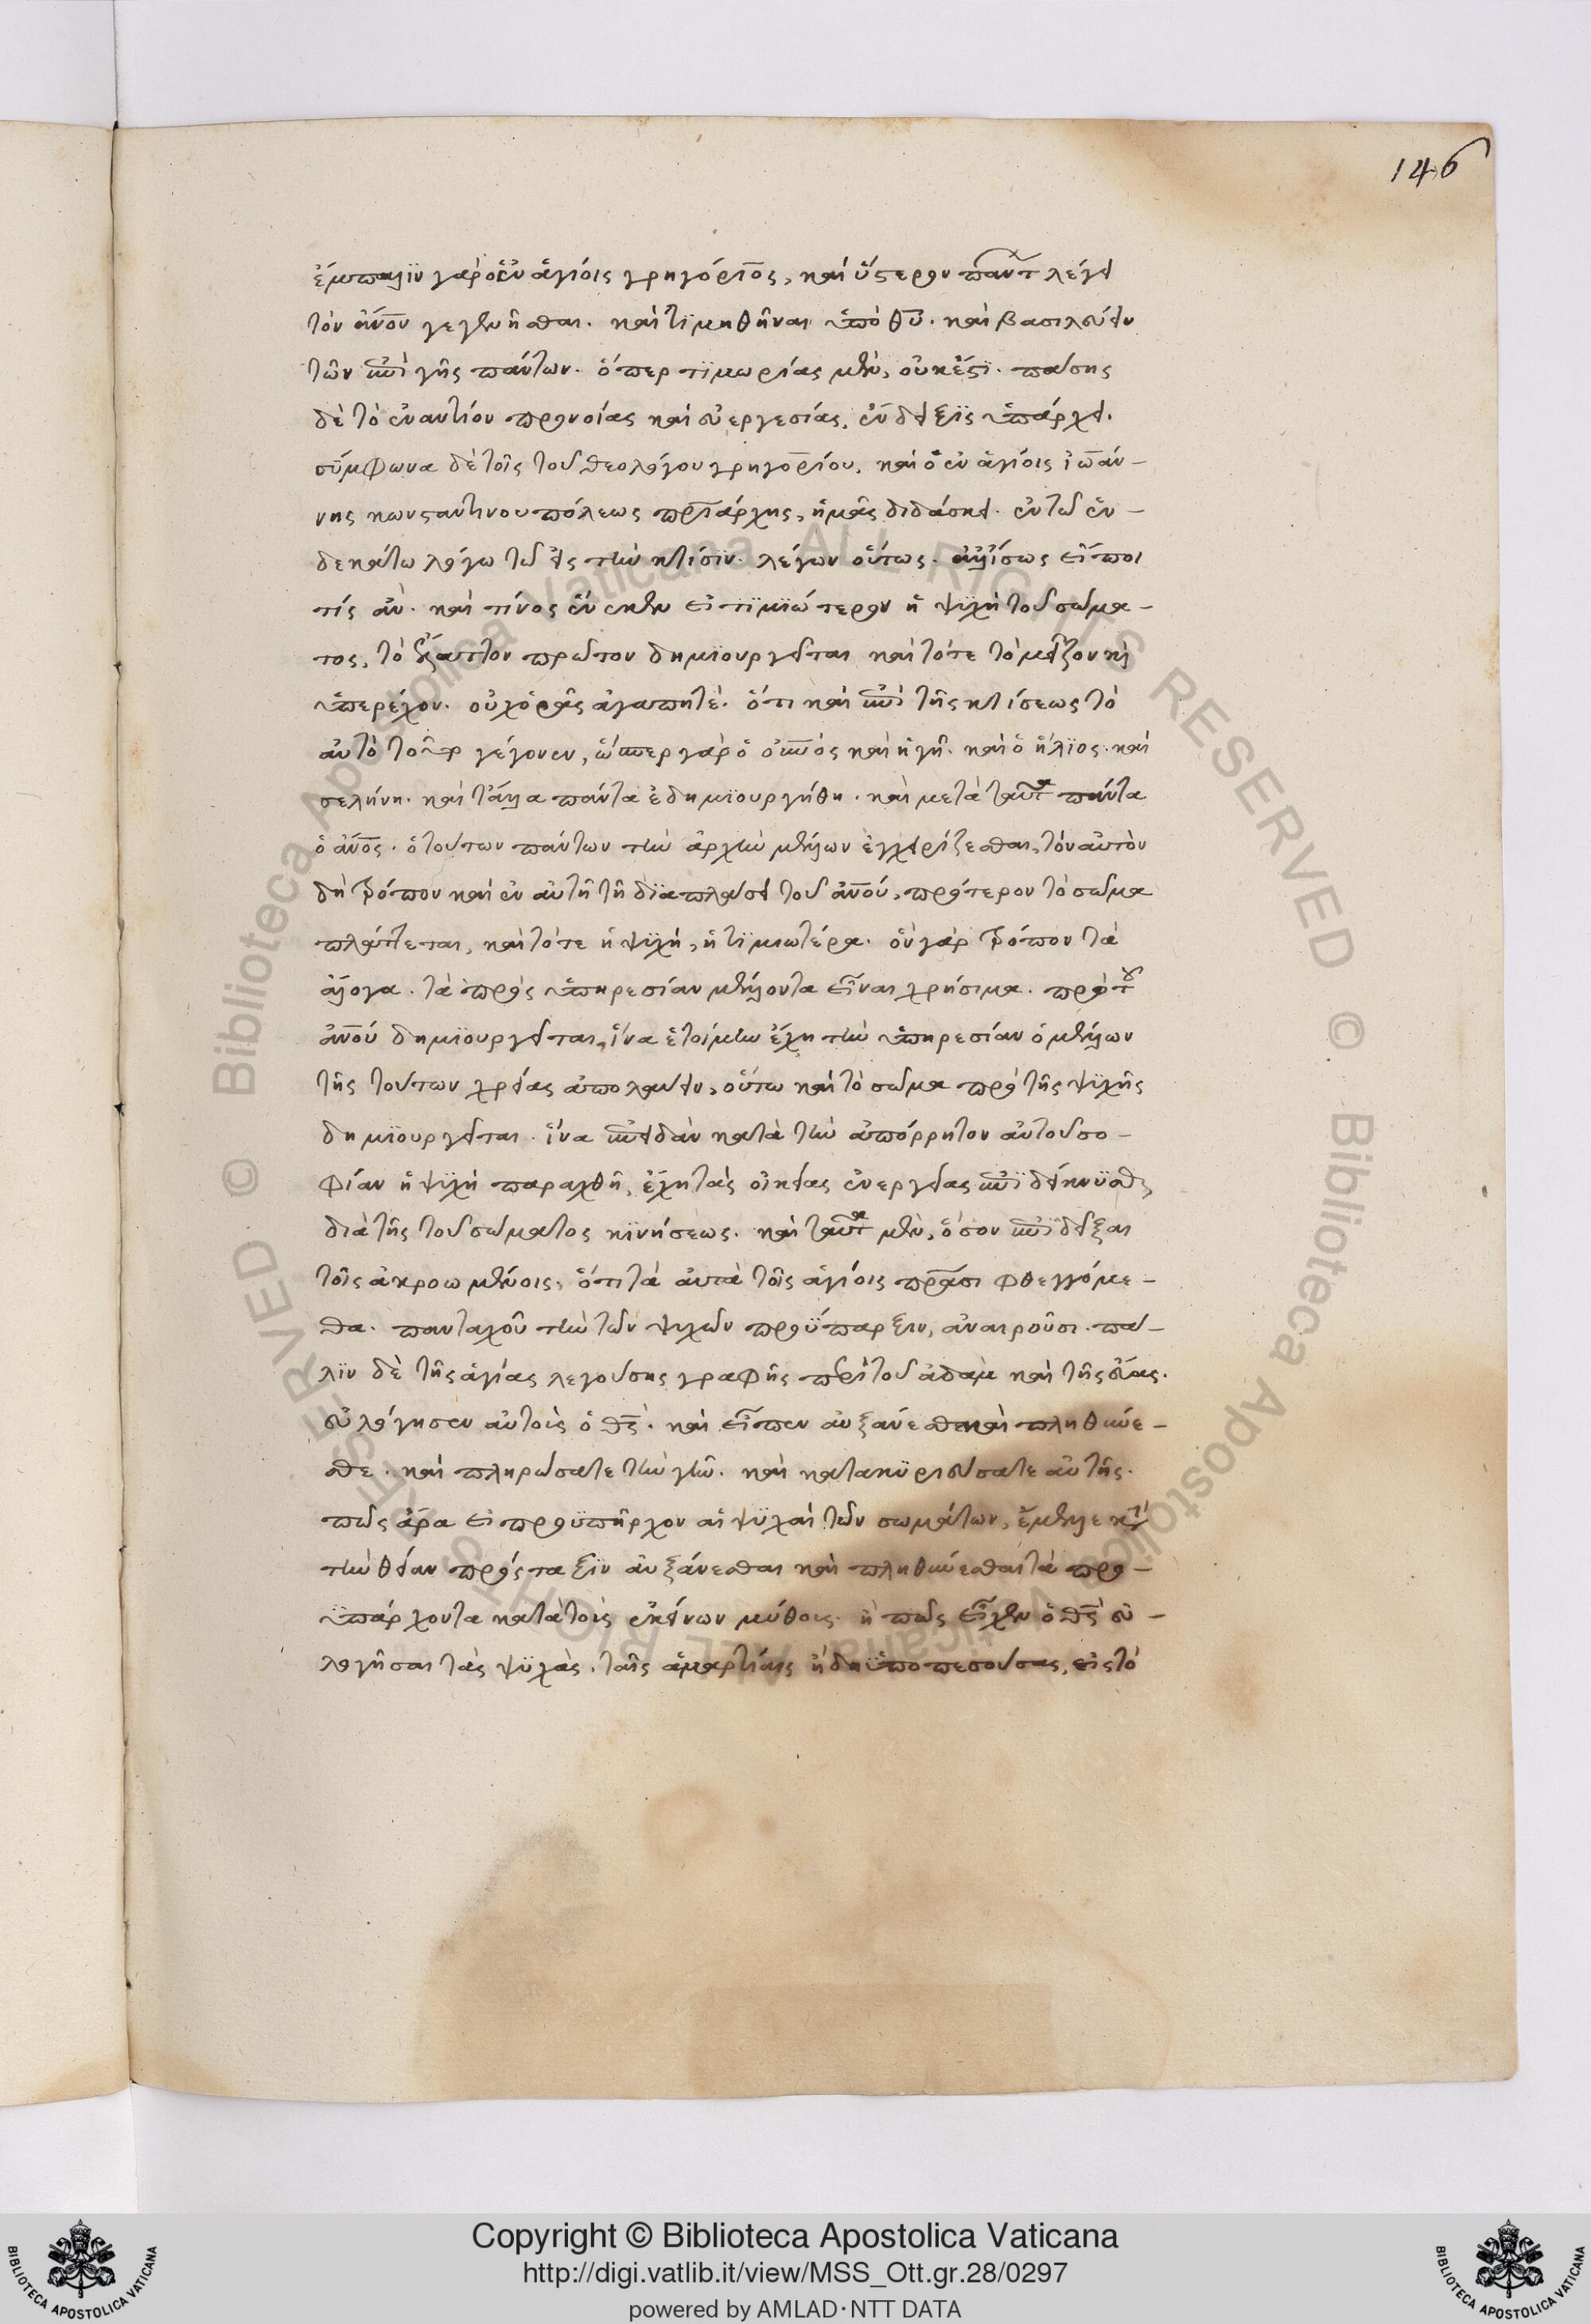 146
ἔμπαλιν γὰρ ὁ ἐν ἁγίοις γρηγόριος, καὶ ὕστερον πάντ λέγει
τὸν ἄνον γεγενῆσθαι. καὶ τιμηθῆναι ὑπὸ θυ. καὶ βασιλεύειν
τῶν ἐπὶ γῆς πάντων. ὅπερ τϊμωρίας μὲν, οὐκ ἔστϊ. πάσης
δὲ τὸ ἐναντίον προνοίας καὶ εὐεργεσίας, ἔνδειξϊς ὑπάρχει.
σύμφωνα δὲ τοῖς τοῦ θεολόγου γρηγορίου, καὶ ὁ ἐν ἁγίοις ἰωάν-
νης κωνσταντινουπόλεως πριάρχης, ἡμᾶς διδάσκει. ἐν τῶ ἑν-
δεκάτω λόγω τῶ εἰς τὴν κτίσϊν. λέγων οὕτως. ἀλλ' ἴσως εἴποι
τίς ἄν. καὶ τίνος ἕνεκεν εἰ τϊμϊώτερον ἡ ψϋχὴ τοῦ σώμα-
τος, τὸ ἔλαττον πρῶτον δημϊουργεῖται καὶ τότε τὸ μεῖζον καὶ
ὑπερέχον. οὐχ ὁρᾶς ἀγαπητὲ. ὅτι καὶ ἐπὶ τῆς κτίσεως τὸ
αὐτὸ τοῦτο γέγονεν, ὥσπερ γὰρ ὁ οὐνός καὶ ἡ γῆ. καὶ ὁ ἥλϊος. καὶ
σελήνη. καὶ τἄλλα πάντα ἐδημϊουργήθη. καὶ μετὰ ταῦτα πάντα
ὁ ἄνος. ὁ τούτων πάντων τὴν ἀρχὴν μέλλων ἐγχειρίζεσθαι, τὸν αὐτὸν
δὴ τρόπον καὶ ἐν αὐτῆ τῆ δϊαπλάσει τοῦ ἀνου, πρότερον τὸ σῶμα
πλάττεται, καὶ τότε ἡ ψϋχή, ἡ τϊμιωτέρα. ὃν γὰρ τρόπον τὰ
ἄλογα. τὰ πρὸς ὑπηρεσίαν μέλλοντα εἶναι χρήσιμα. πρὸ τοῦ
ἀνου δημϊουργεῖται, ἵνα ἑτοίμην ἔχη τὴν ὑπηρεσίαν ὁ μέλλων
τῆς τούτων χρείας ἀπολαύειν, οὕτω καὶ τὸ σῶμα πρὸ τῆς ψϋχῆς
δημϊουργεῖται. ἵνα ἐπειδὰν κατὰ τὴν ἀπόρρητον αὐτοῦ σο-
φίαν ἡ ψϋχὴ παραχθῆ, ἔχη τὰς οἰκείας ἐνεργείας ἐπϊδείκνϋσθαι
διὰ τῆς τοῦ σώματος κϊνήσεως. καὶ ταῦτα μὲν, ὅσον ἐπιδεῖξαι
τοῖς ἀκροωμένοις, ὅτι τὰ αὐτὰ τοῖς ἁγίοις πράσι φθεγγόμε-
θα. πανταχοῦ τὴν τῶν ψυχῶν προΰπαρξιν, ἀναιροῦσι. πά-
λϊν δὲ τῆς ἁγίας λεγούσης γραφῆς περὶ τοῦ ἀδὰμ καὶ τῆς εὔας.
εὐλόγησεν αὐτοὺς ὁ θς. καὶ εἶπεν αὐξάνεσθε καὶ πληθύνε-
σθε. καὶ πληρώσατε τὴν γῆν. καὶ κατακϋριεύσατε αὐτῆς.
πῶς ἄρα εἰ προϋπῆρχον αἱ ψϋχαὶ τῶν σωμάτων, ἔμελλε κατὰ
τὴν θείαν πρόσταξϊν αὐξάνεσθαι καὶ πληθύνεσθαι τὰ προ-
ϋπάρχοντα κατὰ τοὺς ἐκείνων μύθους. ἢ πῶς εἶχεν ὁ θς εὐ-
λογῆσαι τὰς ψϋχὰς. ταῖς ἁμαρτίαις ἤδη ὑποπεσούσας, εἰς τὸ
Copyright © Biblioteca Apostolica Vaticana
http://digi.vatlib.it/view/MSS_Ott.gr.28/0297
powered by AMLAD·NTT DATA